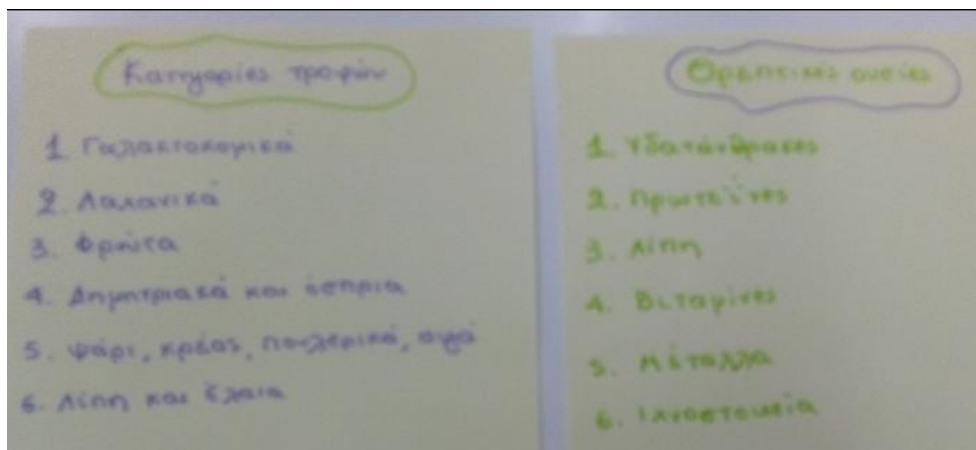 Κατηγορίες τροφών
1. Γαλακτοκομικά
2. Λαχανικά
3. Φρούτα
4. Δημητριακά και όσπρια
5. Ψάρι, κρέας, πουλερικά, αυγά
6. Λίπη και έλαια
Θρεπτικές ουσίες
1. Υδατάνθρακες
2. Πρωτεΐνες
3. Λίπη
4. Βιταμίνες
5. Μέταλλα
6. Ιχνοστοιχεία